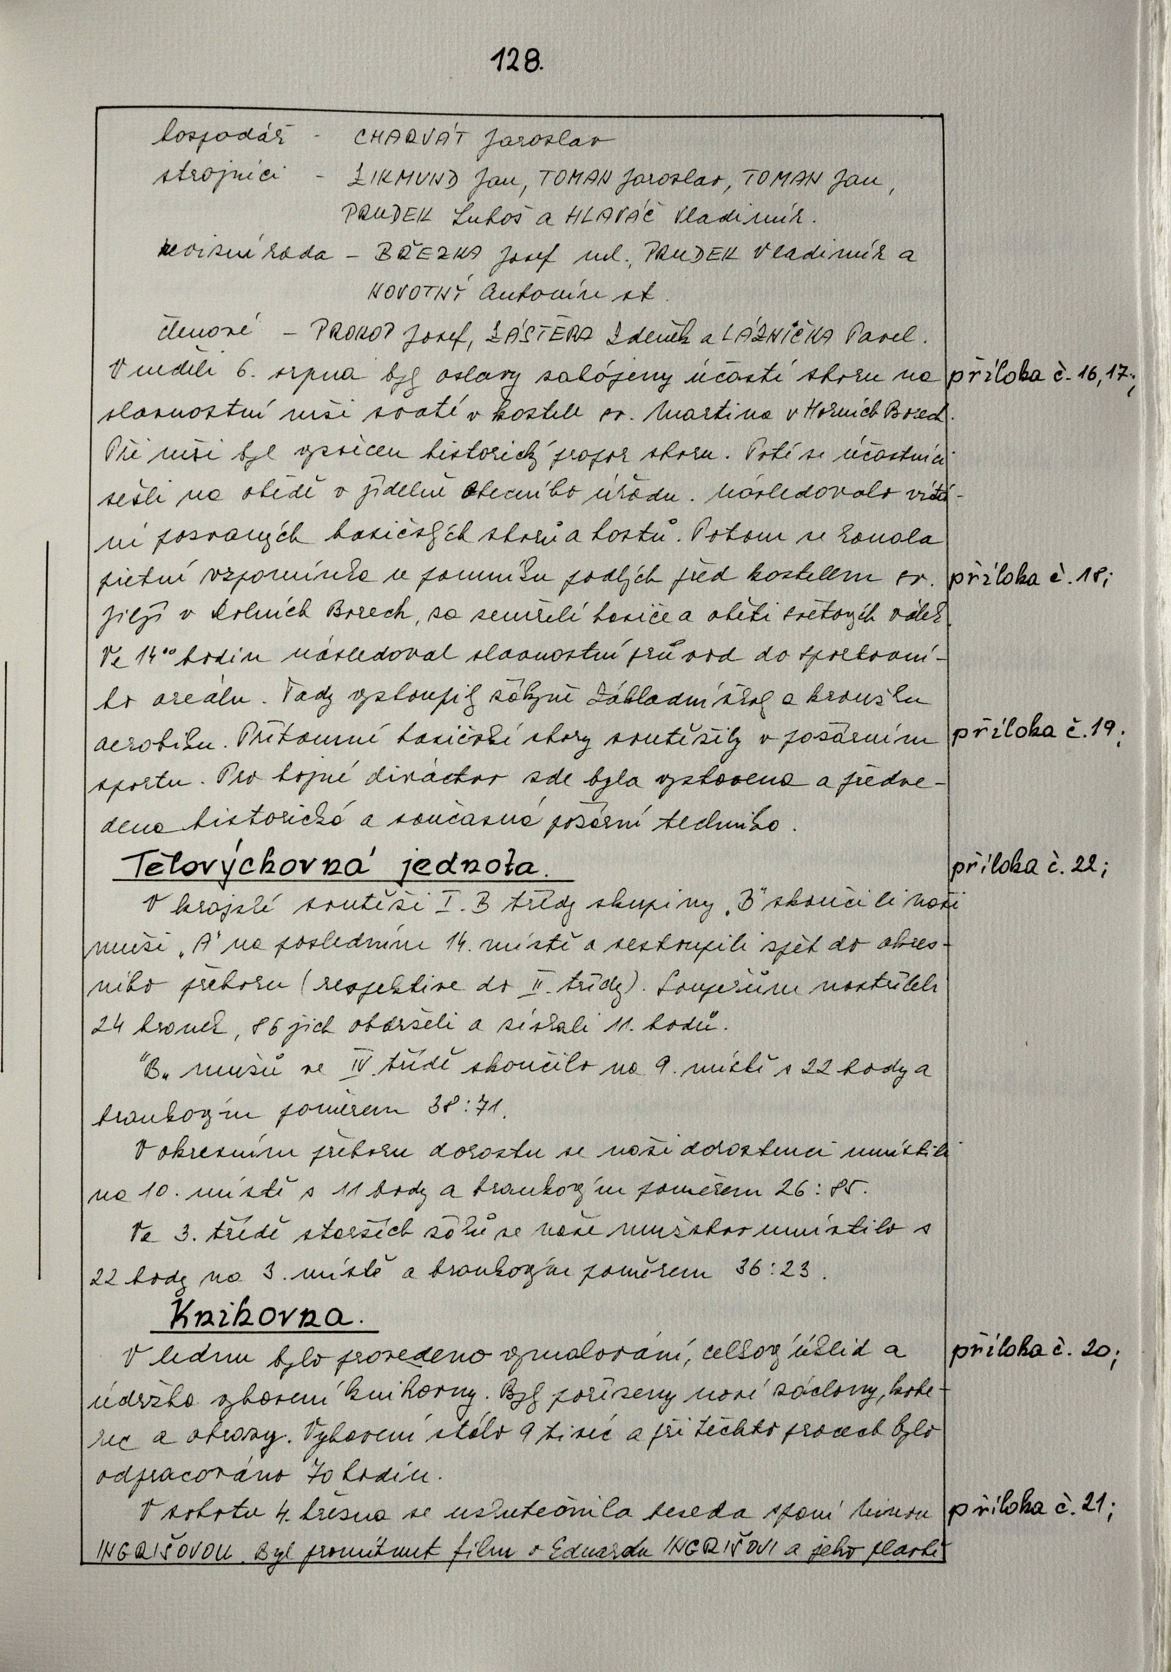 128.
hospodář - CHARVÁT Jaroslav
strojníci - ZIKMUND Jan, TOMAN Jaroslav, TOMAN Jan,
PRUDEK Luboš a HLAVÁČ Vladimír.
revizní rada - BŘEZKA Josef ml., PRUDEK Vladimír a
NOVOTNÝ Antonín st.
členové - PROKOP Josef, ZÁSTĚRA Zdeněk a LÁZNIČKA Pavel.
V neděli 6. srpna byly oslavy zahájeny účastí sboru na
příloha č. 16, 17;
slavnostní mši svaté v kostele sv. Martina v Horních Borech.
Při mši byl vysvěcen historický prapor sboru. Poté se účastníci
sešli na obědě v jídelně Obecního úřadu. Následovalo vítá-
ní pozvaných hasičských sborů a hostů. Potom se konala
pietní vzpomínka u pomníku padlých před kostelem sv.
příloha č. 18;
Jiljí v Dolních Borech, za zemřelé hasiče a oběti světových válek.
Ve 14⁰⁰ hodin následoval slavnostní průvod do sportovní-
ho areálu. Tady vystoupily žákyně Základní školy a kroužku
aerobiku. Přítomné hasičské sbory soutěžily v požárním
příloha č. 19;
sportu. Pro hojné diváctvo zde byla vystavena a předve-
dena historická a současná požární technika.
Tělovýchovná jednota.
příloha č. 22;
V krajské soutěži I. B třídy skupiny „B" skončili naši
muži „A" na posledním 14. místě a sestoupili zpět do okres-
ního přeboru (respektive do II. třídy). Soupeřům nastříleli
24 branek, 86 jich obdrželi a získali 11. bodů.
"B„ mužů ve IV třídě skončilo na 9. místě s 22 body a
brankovým poměrem 38:71.
V okresním přeboru dorostu se naši dorostenci umístili
na 10. místě s 11 body a brankovým poměrem 26:85.
Ve 3. třídě starších žáků se naše mužstvo umístilo s
22 body na 3. místě a brankovým poměrem 36:23.
Knihovna.
V lednu bylo provedeno vymalování, celkový úklid a
příloha č. 20;
údržba vybavení knihovny. Byly pořízeny nové záclony, kobe-
rec a obrazy. Vybavení stálo 9 tisíc a při těchto pracech bylo
odpracováno 70 hodin.
V sobotu 4. března se uskutečnila beseda s paní
příloha č. 21;
INGRIŠOVOU. Byl promítnut film o Eduardu INGRIŠOVI a jeho plavbě